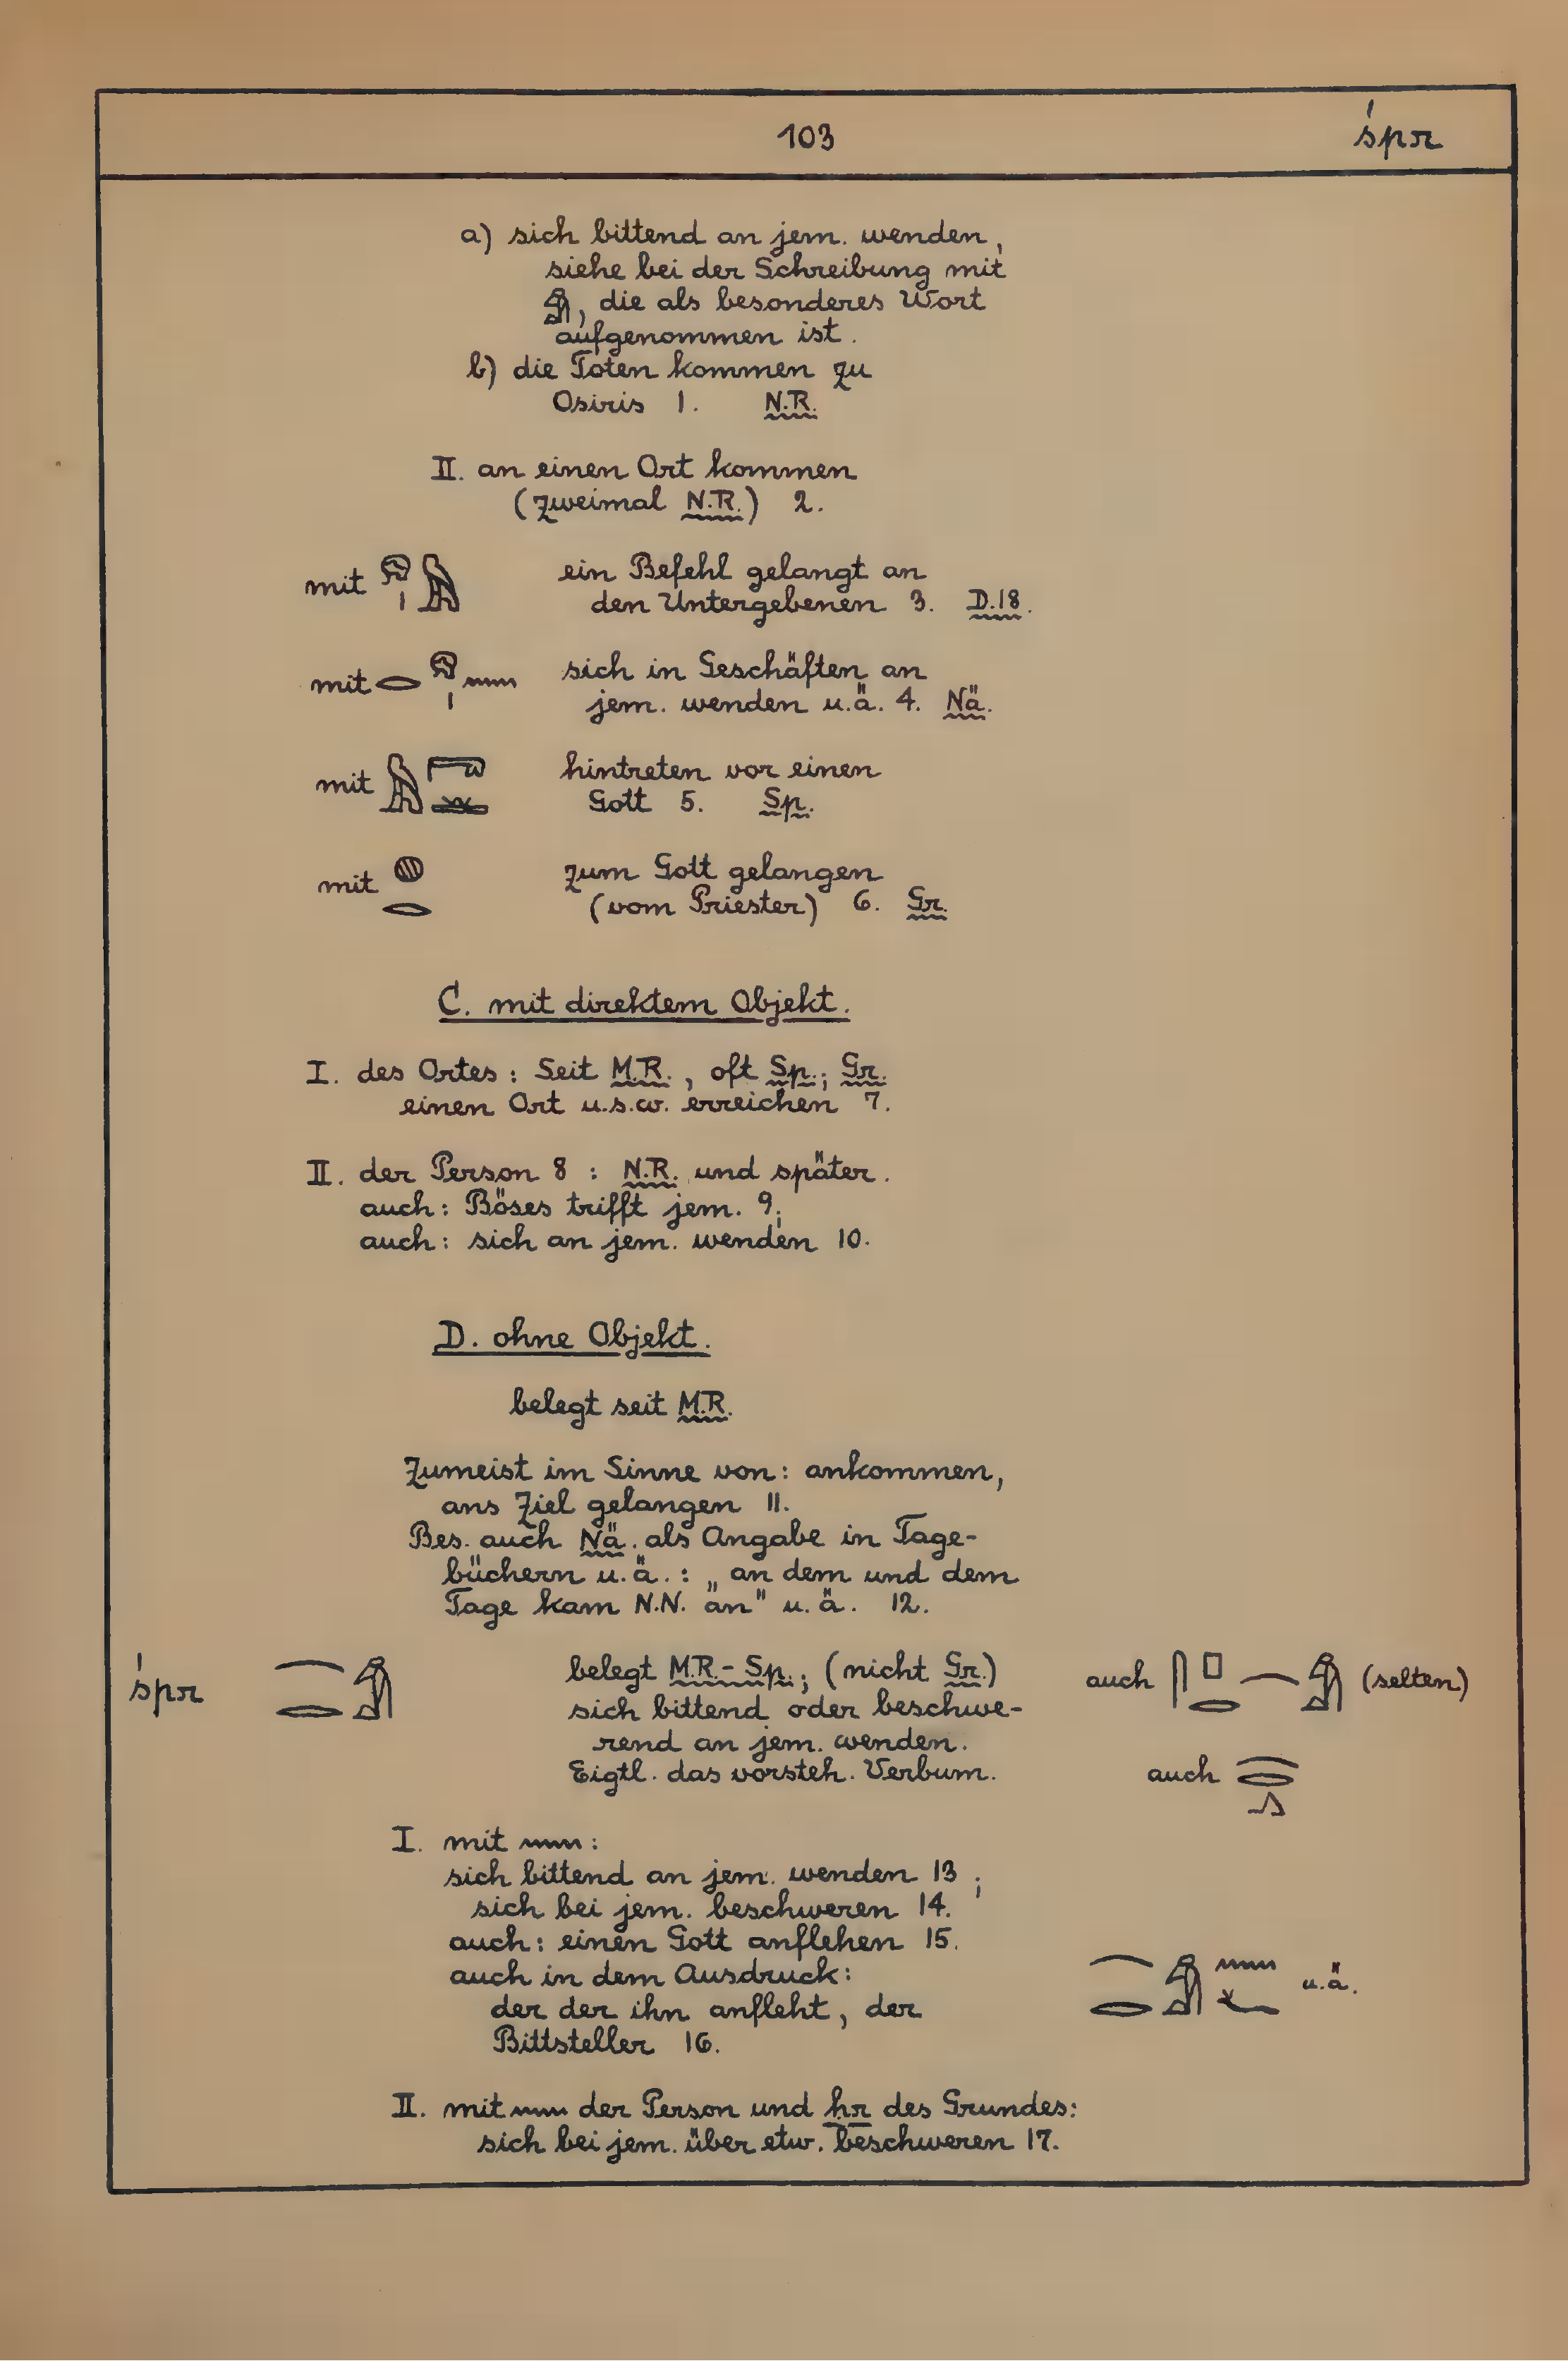 103 śpr
a) sich bittend an jem. wenden,
siehe bei der Schreibung mit
𓀁, die als besonderes Wort
aufgenommen ist.
b) die Toten kommen zu
Osiris 1. N.R.
II. an einen Ort kommen
(zweimal N.R.) 2.
mit 𓁶𓏤𓅓 ein Befehl gelangt an
den Untergebenen 3. D.18.
mit 𓂋𓁶𓏤𓈖 sich in Geschäften an
jem. wenden u.ä. 4. Nä.
mit hintreten vor einen
Gott 5. Sp.
mit 𓐍𓂋 zum Gott gelangen
(vom Priester) 6. Gr.
C. mit direktem Objekt.
I. des Ortes: Seit M.R., oft Sp.; Gr.
einen Ort u.s.w. erreichen 7.
II. der Person 8: N.R. und später.
auch: Böses trifft jem. 9;
auch: sich an jem. wenden 10.
D. ohne Objekt.
belegt seit M.R.
Zumeist im Sinne von: ankommen,
ans Ziel gelangen 11.
Bes. auch Nä. als Angabe in Tage-
büchern u.ä.: „an dem und dem
Tage kam N.N. an" u.ä. 12.
śpr 𓄋𓂋𓀁 belegt M.R.-Sp.; (nicht Gr.) auch 𓋴𓊪𓂋𓄋𓀁 (selten)
sich bittend oder beschwe-
rend an jem. wenden.
Eigtl. das vorsteh. Verbum. auch 𓄋𓂋𓂻
I. mit 𓈖:
sich bittend an jem. wenden 13;
sich bei jem. beschweren 14.
auch: einen Gott anflehen 15.
auch in dem Ausdruck: 𓄋𓂋𓀁𓈖𓆑 u.ä.
der der ihn anfleht, der
Bittsteller 16.
II. mit 𓈖 der Person und ḥr des Grundes:
sich bei jem. über etw. beschweren 17.